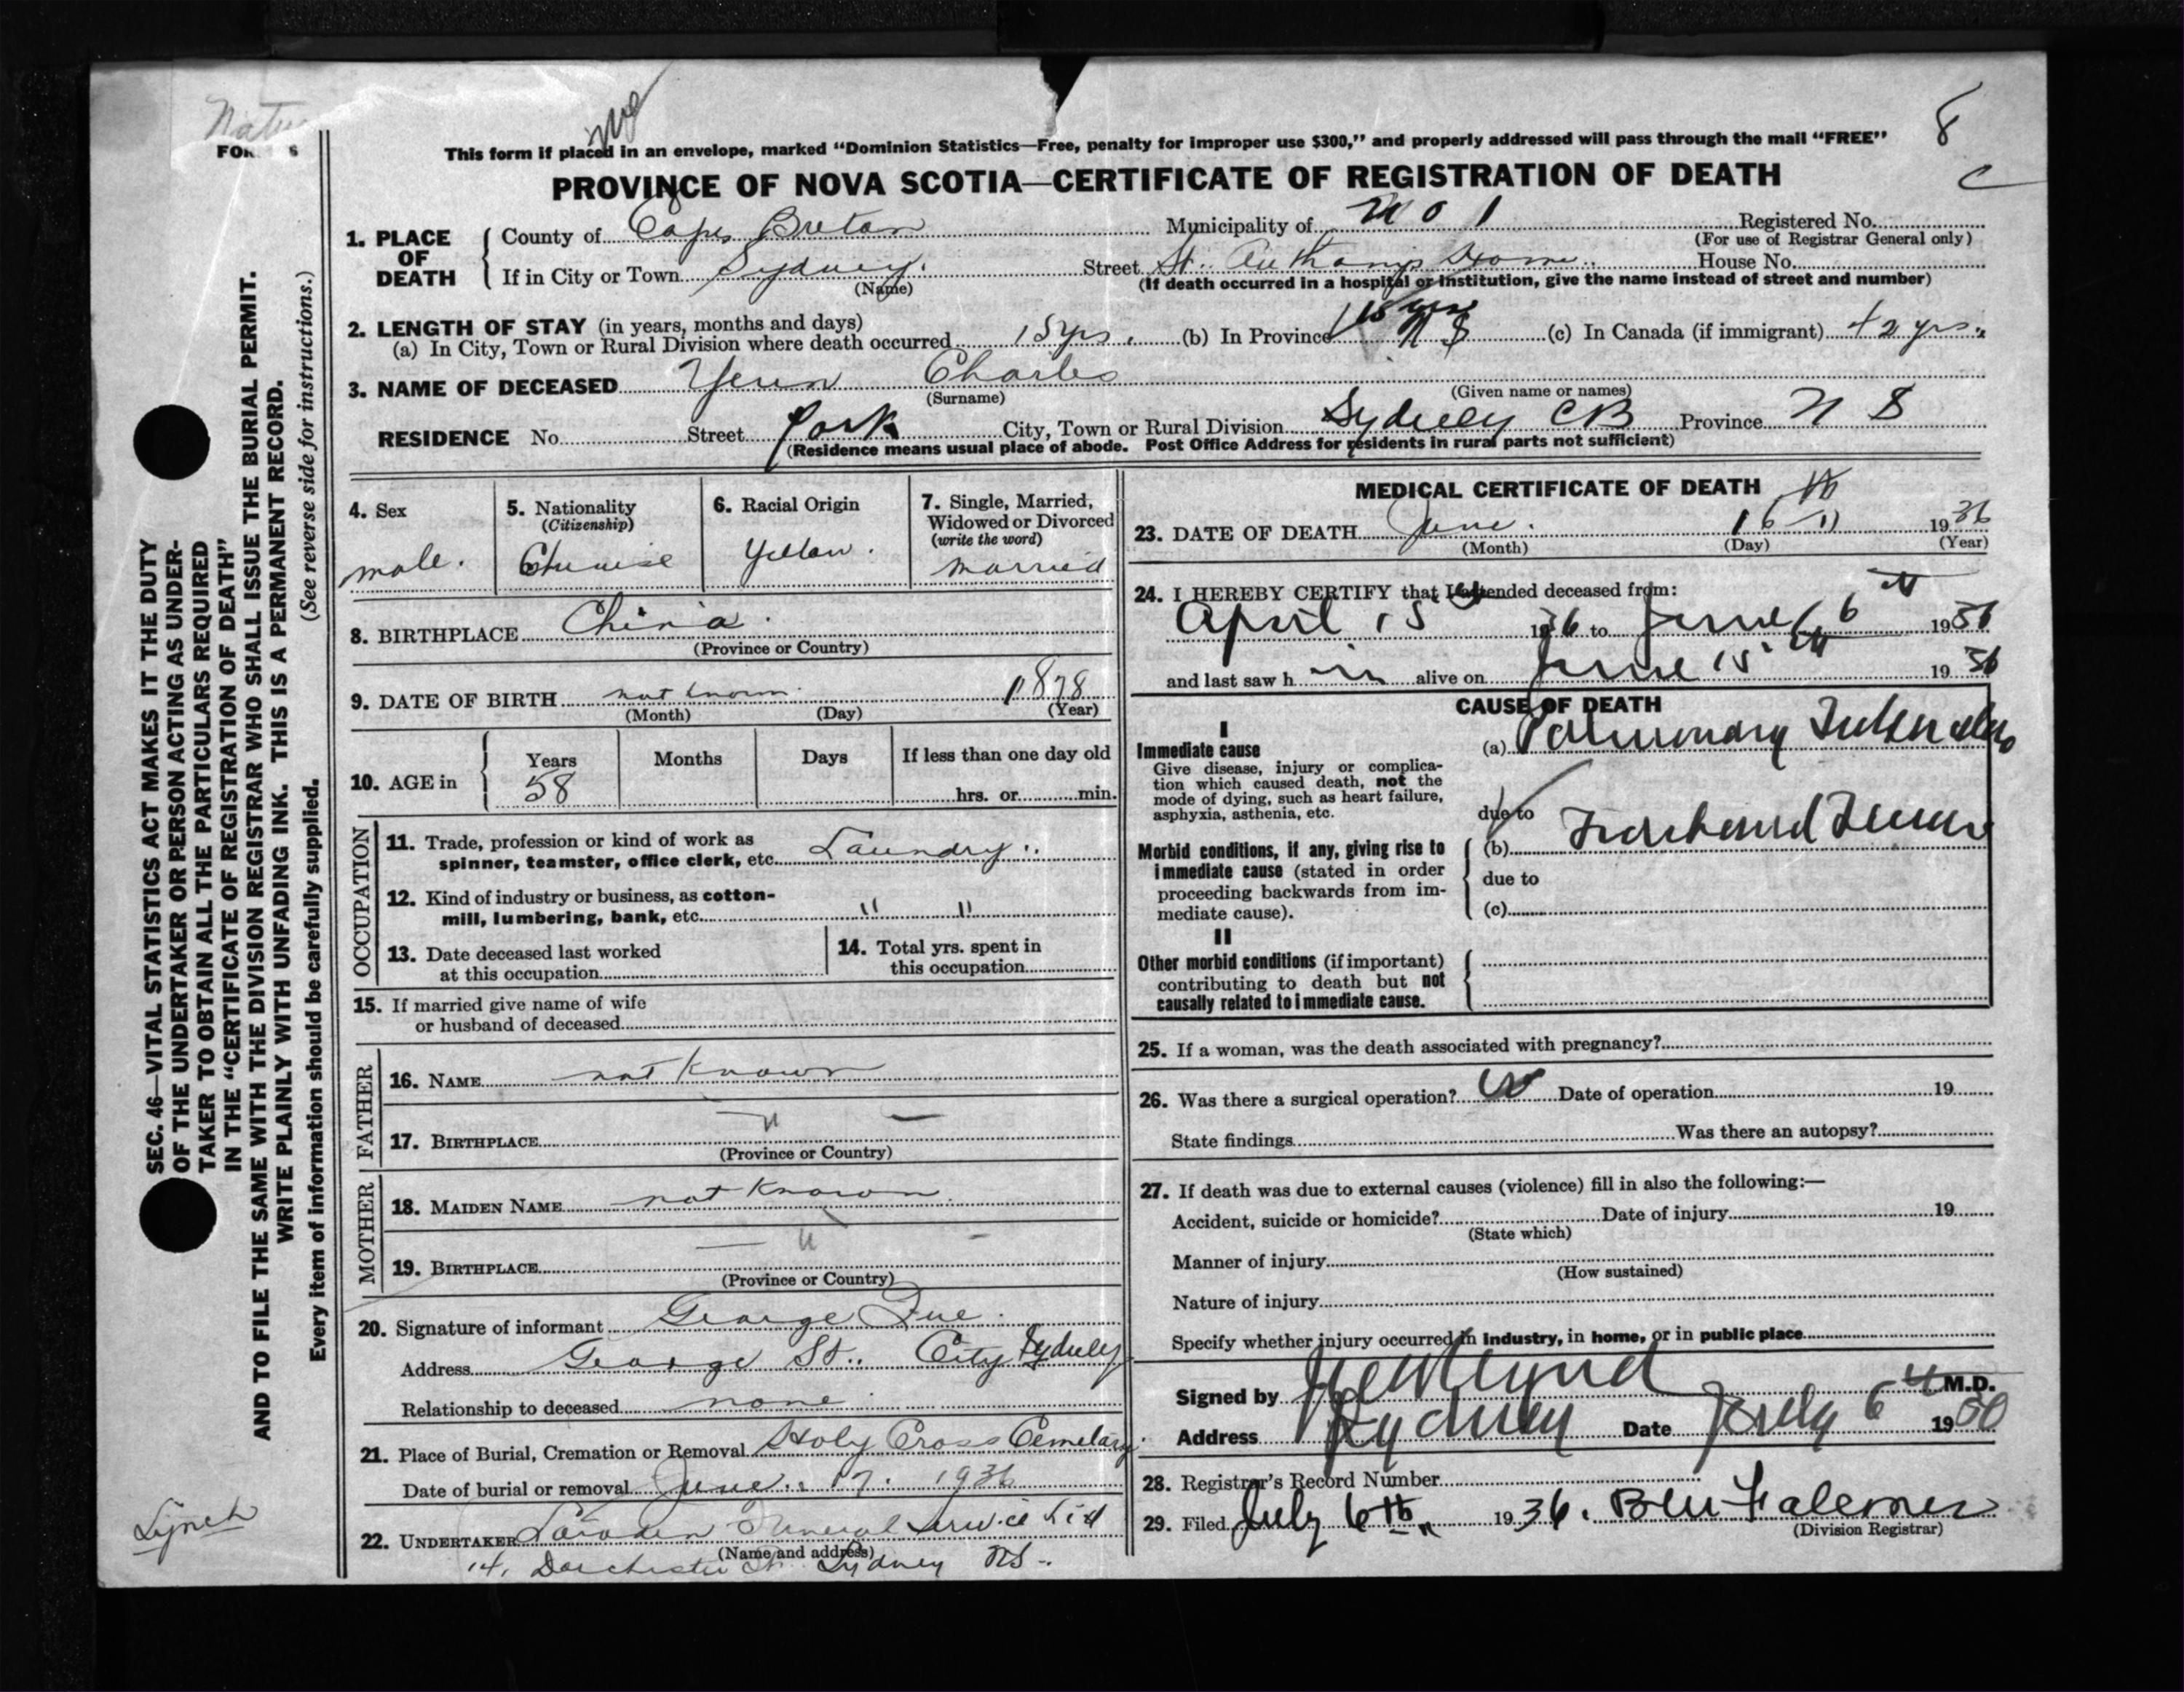 FOR 6
This form if placed in an envelope, marked “Dominion Statistics—Free, penalty for improper use $300,” and properly addressed will pass through the mail “FREE”
8
c
PROVINCE OF NOVA SCOTIA—CERTIFICATE OF REGISTRATION OF DEATH
1. PLACE OF DEATH
County of Cape Breton Municipality of No 1 Registered No.
(For use of Registrar General only)
If in City or Town Sydney. Street St. Anthony's Home. House No.
(Name) (If death occurred in a hospital or institution, give the name instead of street and number)
2. LENGTH OF STAY (in years, months and days)
15 yrs
(a) In City, Town or Rural Division where death occurred 15 yrs. (b) In Province N S (c) In Canada (if immigrant) 42 yrs.
3. NAME OF DECEASED Yeun Charles
(Surname) (Given name or names)
RESIDENCE No. Street York City, Town or Rural Division Sydney CB Province N S
(Residence means usual place of abode. Post Office Address for residents in rural parts not sufficient)
4. Sex
male.
5. Nationality
(Citizenship)
Chinese
6. Racial Origin
Yellow.
7. Single, Married,
Widowed or Divorced
(write the word)
Married
8. BIRTHPLACE China.
(Province or Country)
9. DATE OF BIRTH not known. 1878
(Month) (Day) (Year)
10. AGE in
Years Months Days If less than one day old
58 hrs. or min.
OCCUPATION
11. Trade, profession or kind of work as
spinner, teamster, office clerk, etc. Laundry..
12. Kind of industry or business, as cotton-
mill, lumbering, bank, etc. " "
13. Date deceased last worked
at this occupation
14. Total yrs. spent in
this occupation
15. If married give name of wife
or husband of deceased
FATHER
16. NAME not known
17. BIRTHPLACE "
(Province or Country)
MOTHER
18. MAIDEN NAME not known.
19. BIRTHPLACE "
(Province or Country)
20. Signature of informant George Fue.
Address George St.. City Sydney
Relationship to deceased none
21. Place of Burial, Cremation or Removal Holy Cross Cemetary.
Date of burial or removal June. 17. 1936
22. UNDERTAKER Funeral Service Ltd
(Name and address)
14, Dorchester St. Sydney NS.
MEDICAL CERTIFICATE OF DEATH
23. DATE OF DEATH June. 16th 1936
(Month) (Day) (Year)
24. I HEREBY CERTIFY that I attended deceased from:
April 15th 1936 to June 16th 1936
and last saw h im alive on June 15th 1936
CAUSE OF DEATH
I
Immediate cause
Give disease, injury or complica-
tion which caused death, not the
mode of dying, such as heart failure,
asphyxia, asthenia, etc.
(a) Pulmonary Tuberculosis
due to
Morbid conditions, if any, giving rise to
immediate cause (stated in order
proceeding backwards from im-
mediate cause).
(b)
due to
(c)
II
Other morbid conditions (if important)
contributing to death but not
causally related to immediate cause.
25. If a woman, was the death associated with pregnancy?
26. Was there a surgical operation? No Date of operation 19
State findings Was there an autopsy?
27. If death was due to external causes (violence) fill in also the following:—
Accident, suicide or homicide? Date of injury 19
(State which)
Manner of injury
(How sustained)
Nature of injury
Specify whether injury occurred in industry, in home, or in public place
Signed by M.D.
Address Sydney Date July 6th 19
28. Registrar's Record Number
29. Filed July 6th 1936.
(Division Registrar)
SEC. 46—VITAL STATISTICS ACT MAKES IT THE DUTY
OF THE UNDERTAKER OR PERSON ACTING AS UNDER-
TAKER TO OBTAIN ALL THE PARTICULARS REQUIRED
IN THE “CERTIFICATE OF REGISTRATION OF DEATH”
AND TO FILE THE SAME WITH THE DIVISION REGISTRAR WHO SHALL ISSUE THE BURIAL PERMIT.
WRITE PLAINLY WITH UNFADING INK. THIS IS A PERMANENT RECORD.
(See reverse side for instructions.)
Every item of information should be carefully supplied.
Lynch